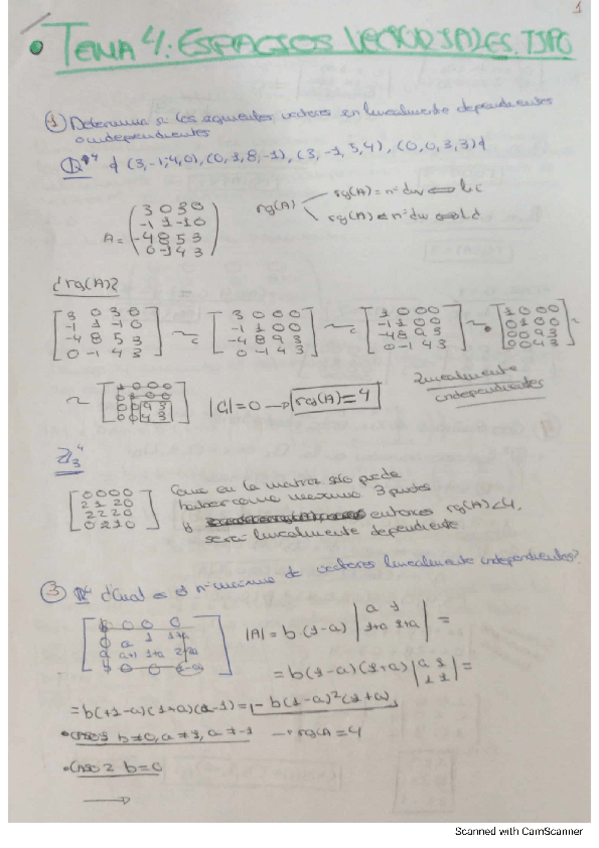 1
• TEMA 4: ESPACIOS VECTORIALES. TIPO
① Determina si los siguientes vectores son linealmente dependientes
o independientes
ℚ⁴ { (3,-1,-4,0), (0,1,8,-1), (3,-1,5,4), (0,0,3,3) }
rg(A) rg(A) = nº dev ⟺ l.i
rg(A) < nº dev ⟺ l.d
A =
3 0 3 0
-1 1 -1 0
-4 8 5 3
0 -1 4 3
¿rg(A)?
3 0 3 0
-1 1 -1 0
-4 8 5 3
0 -1 4 3
~
3 0 0 0
-1 1 0 0
-4 8 9 3
0 -1 4 3
~
1 0 0 0
-1 1 0 0
-4 8 9 3
0 -1 4 3
~
1 0 0 0
0 1 0 0
0 0 9 3
0 0 4 3
~
1 0 0 0
0 1 0 0
0 0 9 3
0 0 4 3
|C| = 0 → rg(A) = 4
Linealmente
independientes
ℤ₃⁴
0 0 0 0
2 1 2 0
2 2 2 0
0 2 1 0
Como en la matriz solo puede
haber como máximo 3 pivotes
y entonces rg(A) < 4,
será linealmente dependiente
③ ℝ⁴ ¿Cual es el nº máximo de vectores linealmente independientes?
b 0 0 0
0 a 1 1+a
0 a+1 1+a
0 0 0
|A| = b (1-a) | a 1 | =
1+a 1+a
= b(1-a)(1+a) | a 1 | =
1 1
= b(+1-a)(1+a)(a-1) = - b(1-a)²(1+a)
• CASO 1 b≠0, a≠1, a≠-1 → rg(A) = 4
• CASO 2 b=0
→
Scanned with CamScanner